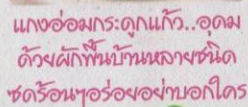 แกงอ่อมกระดูกแก้ว..อุดม
ด้วยผักพื้นบ้านหลายชนิด
ซดร้อนๆอร่อยอย่าบอกใคร